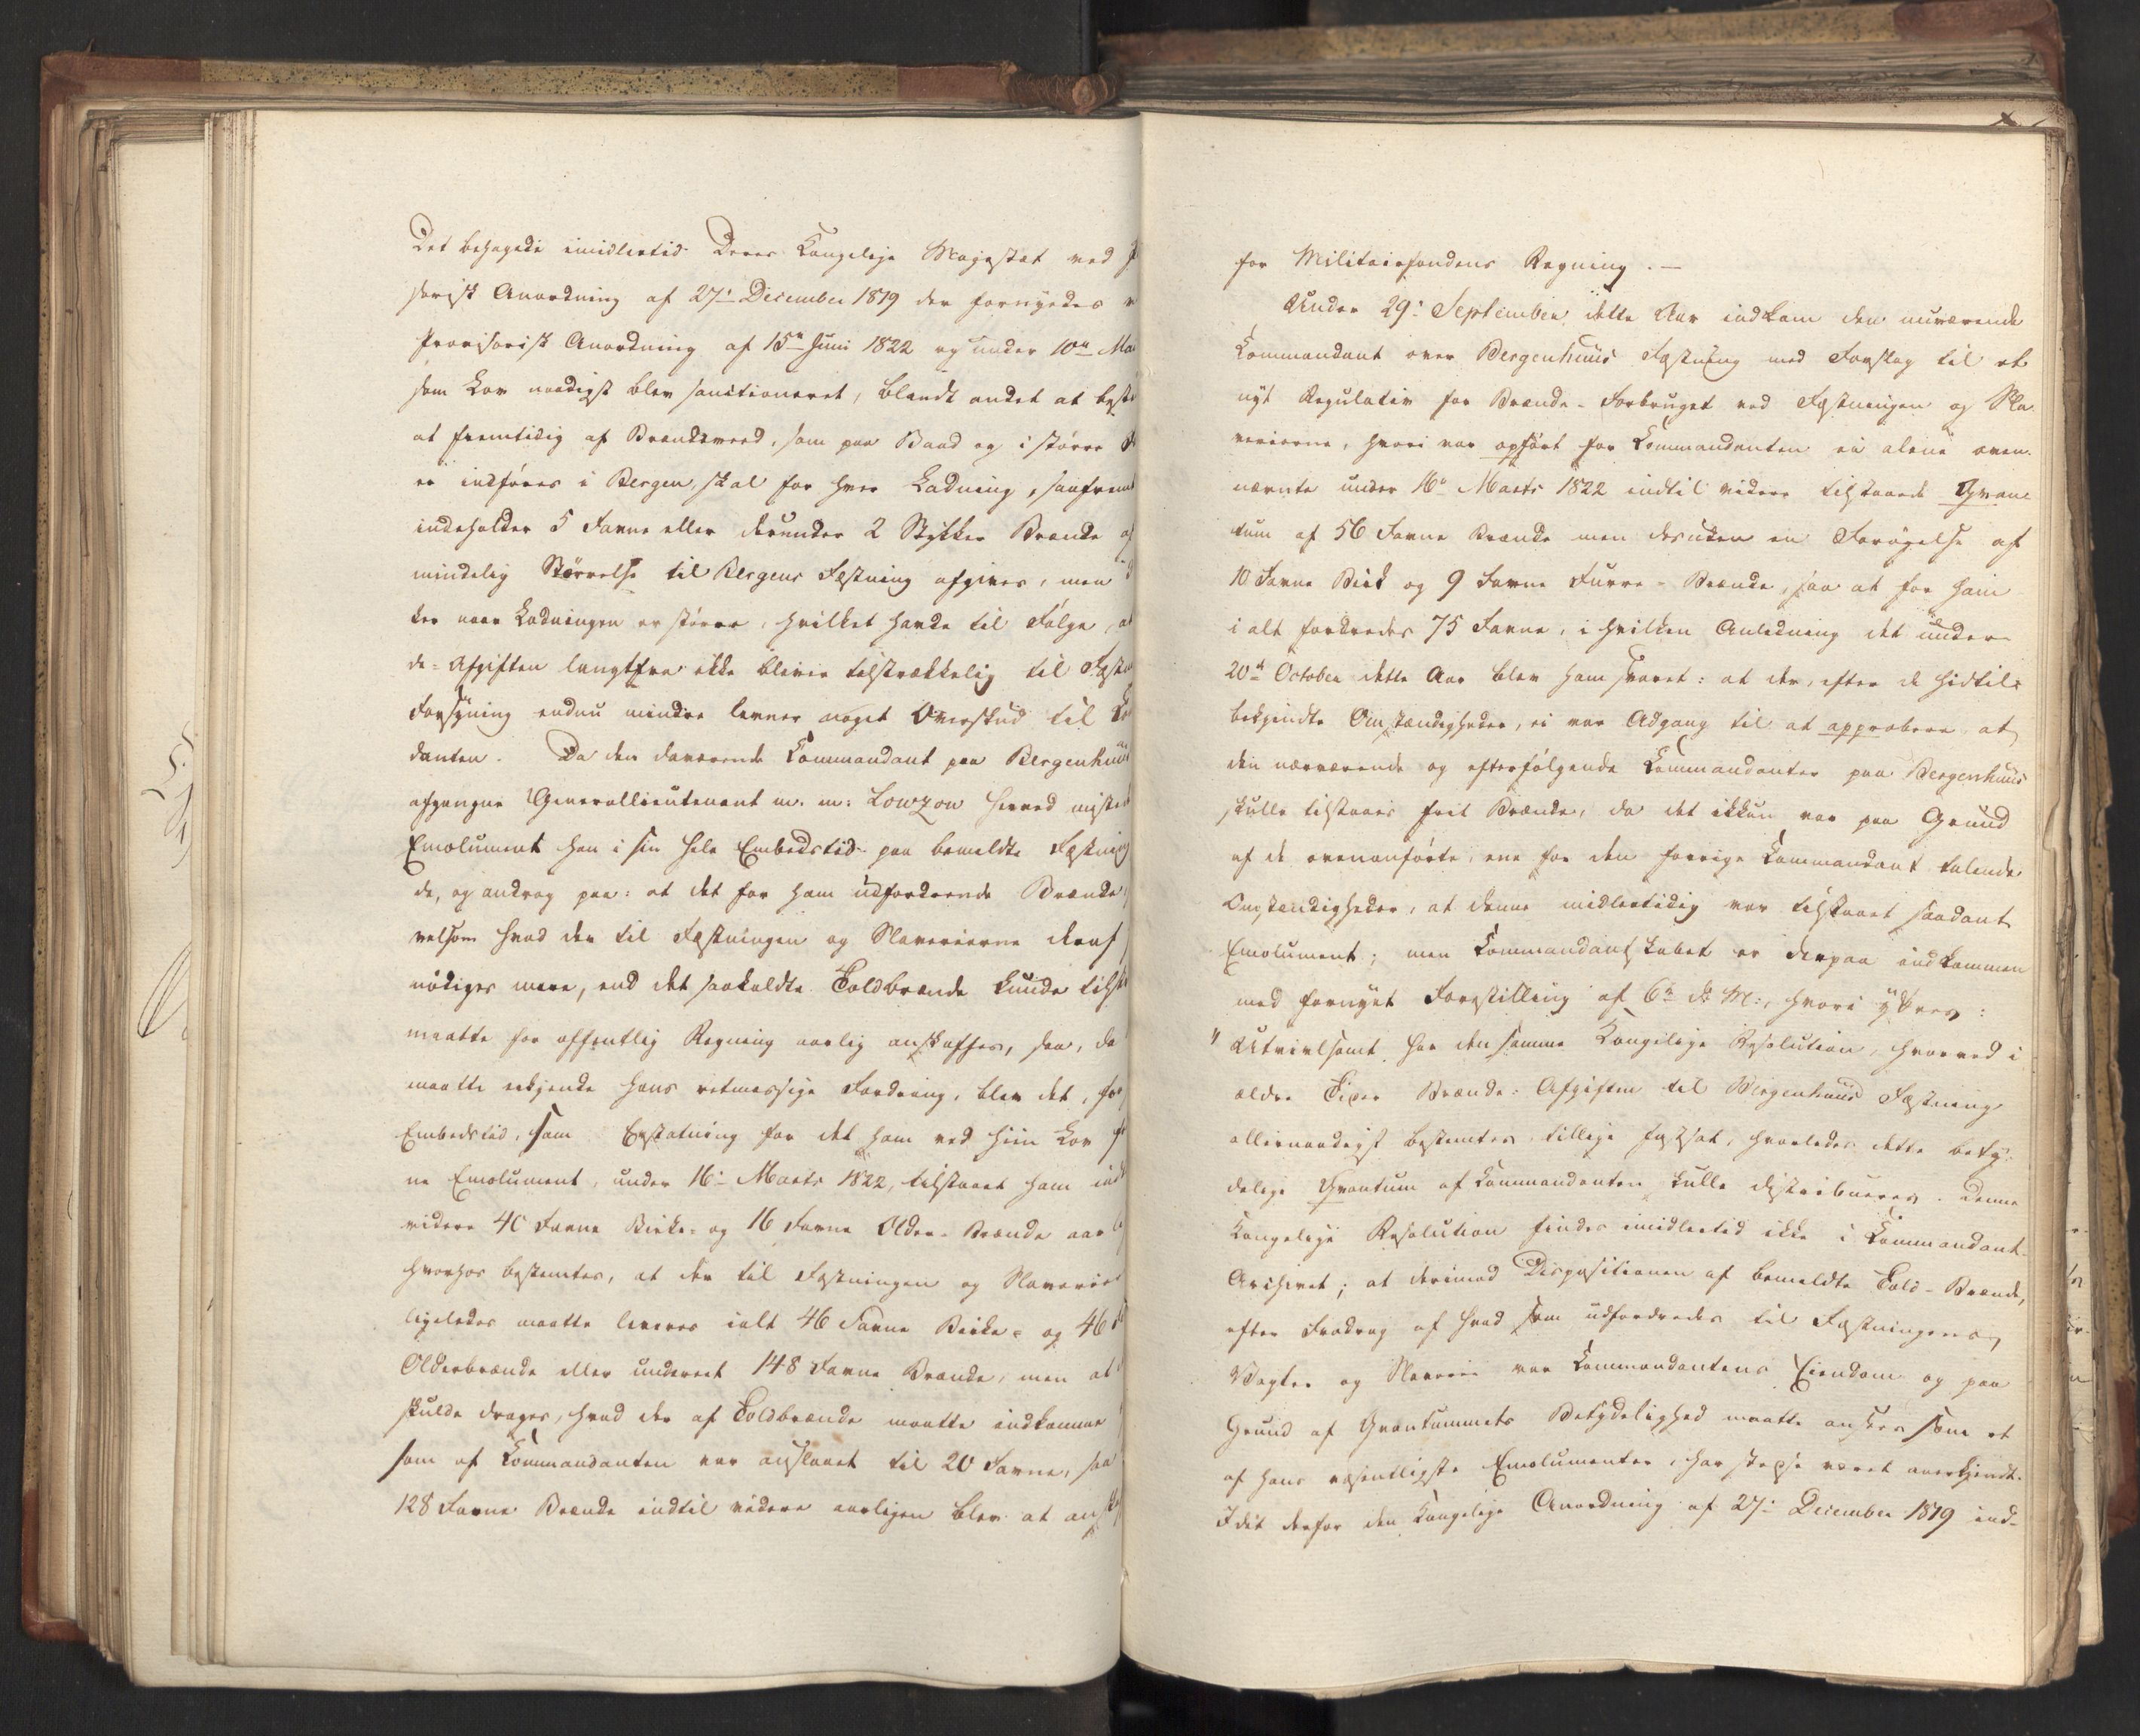 Det behagede imidlertid Deres Kongelige Majestæt ved
sorisk Anordning af 27de December 1819 der fornyedes
Provisorisk Anordning af 15de Juni 1822 og under 10de Ma
som Lov naadigst blev sanctioneret, blandt andet at
at fremtidig af Brændeveed, som paa Baad og i større
ei indføres i Bergen, skal for hver Ladning, saafremt
indeholder 5 Favne eller derunder 2 Stykker Brænde
mindelig Størrelse til Bergens Fæstning afgives, men
ker naar Ladningen er større, hvilket havde til Følge, at
de-Afgiften langtfra ikke bliver tilstrækkelig til
Forsyning endnu mindre levner noget Overskud til
danten. Da den daværende Commandant paa Bergenhuus
afgangne Generallieutenant m. m. Lowzow herved
Emolument han i sin hele Embedstid paa bemeldte Fæstning
de, og androg paa: at det for ham udfordrende Brænde
velsom hvad der til Fæstningen og Slaverierne deraf
nødiges mere, end det saakaldte Toldbrænde kunde
maatte for offentlig Regning aarlig anskaffes, saa, da
maatte erkjende hans retmæssige Fordring, blev det, for
Embedstid, som Erstatning for det ham ved hiin Lov
ne Emolument, under 16de Marts 1822, tilstaaet ham
videre 40 Favne Birke- og 16 Favne Older-Brænde
hvorhos bestemtes, at der til Fæstningen og
ligeledes maatte leveres ialt 46 Favne Birke- og 46
Olderbrænde eller underet 148 Favne Brænde, men at
skulde drages, hvad der af Toldbrænde maatte indkomme
som af Commandanten var anslaaet til 20 Favne, saa
128 Favne Brænde indtil videre aarligen blev at
for Militairfondens Regning. —
Under 29de September dette Aar indkom den nuværende
Commandant over Bergenhuus Fæstning med Forslag til et
nyt Regulativ for Brænde-Forbruget ved Fæstningen og Sla
verierne, hvori var opført for Commandanten ei alene oven-
nævnte under 16de Marts 1822 indtil videre tilstaaede Qvan
tum af 56 Favne Brænde men desuden en Forøgelse af
10 Favne Birk og 9 Favne Furre-Brænde, saa at for ham
i alt fordredes 75 Favne, i hvilken Anledning det under
20de October dette Aar blev ham svaret: at der, efter de hidtil
bekjendte Omstændigheder, ei var Adgang til at approbere, at
den nærværende og efterfølgende Commandanter paa Bergenhuus
skulle tilstaaes frit Brænde, da det ikkun var paa Grund
af de ovenanførte, ene for den forrige Commandant talende
Omstændigheder, at denne midlertidig var tilstaaet saadant
Emolument; men Commandantskabet er derpaa indkommen
med fornyet Forestilling af 6te d: M:, hvori yttres:
"Utvivlsomt har den samme Kongelige Resolution, hvorved i
ældre Tider Brænde-Afgiften til Bergenhuus Fæstning
allernaadigst bestemtes, tillige fastsat, hvorledes dette bety-
delige Qvantum af Commandanten skulle distribueres. Denne
Kongelige Resolution findes imidlertid ikke i Commandant-
Archivet; at derimod Dispositionen af bemeldte Told-Brænde,
efter Fradrag af hvad som udfordredes til Fæstningens
Vagter og Slaverie var Commandantens Eiendom og paa
Grund af Qvantummets Betydelighed maatte ansees som et
af hans væsentligste Emolumenter, har stedse været anerkjendt.
Idet derfor den Kongelige Anordning af 27de December 1819 ind-